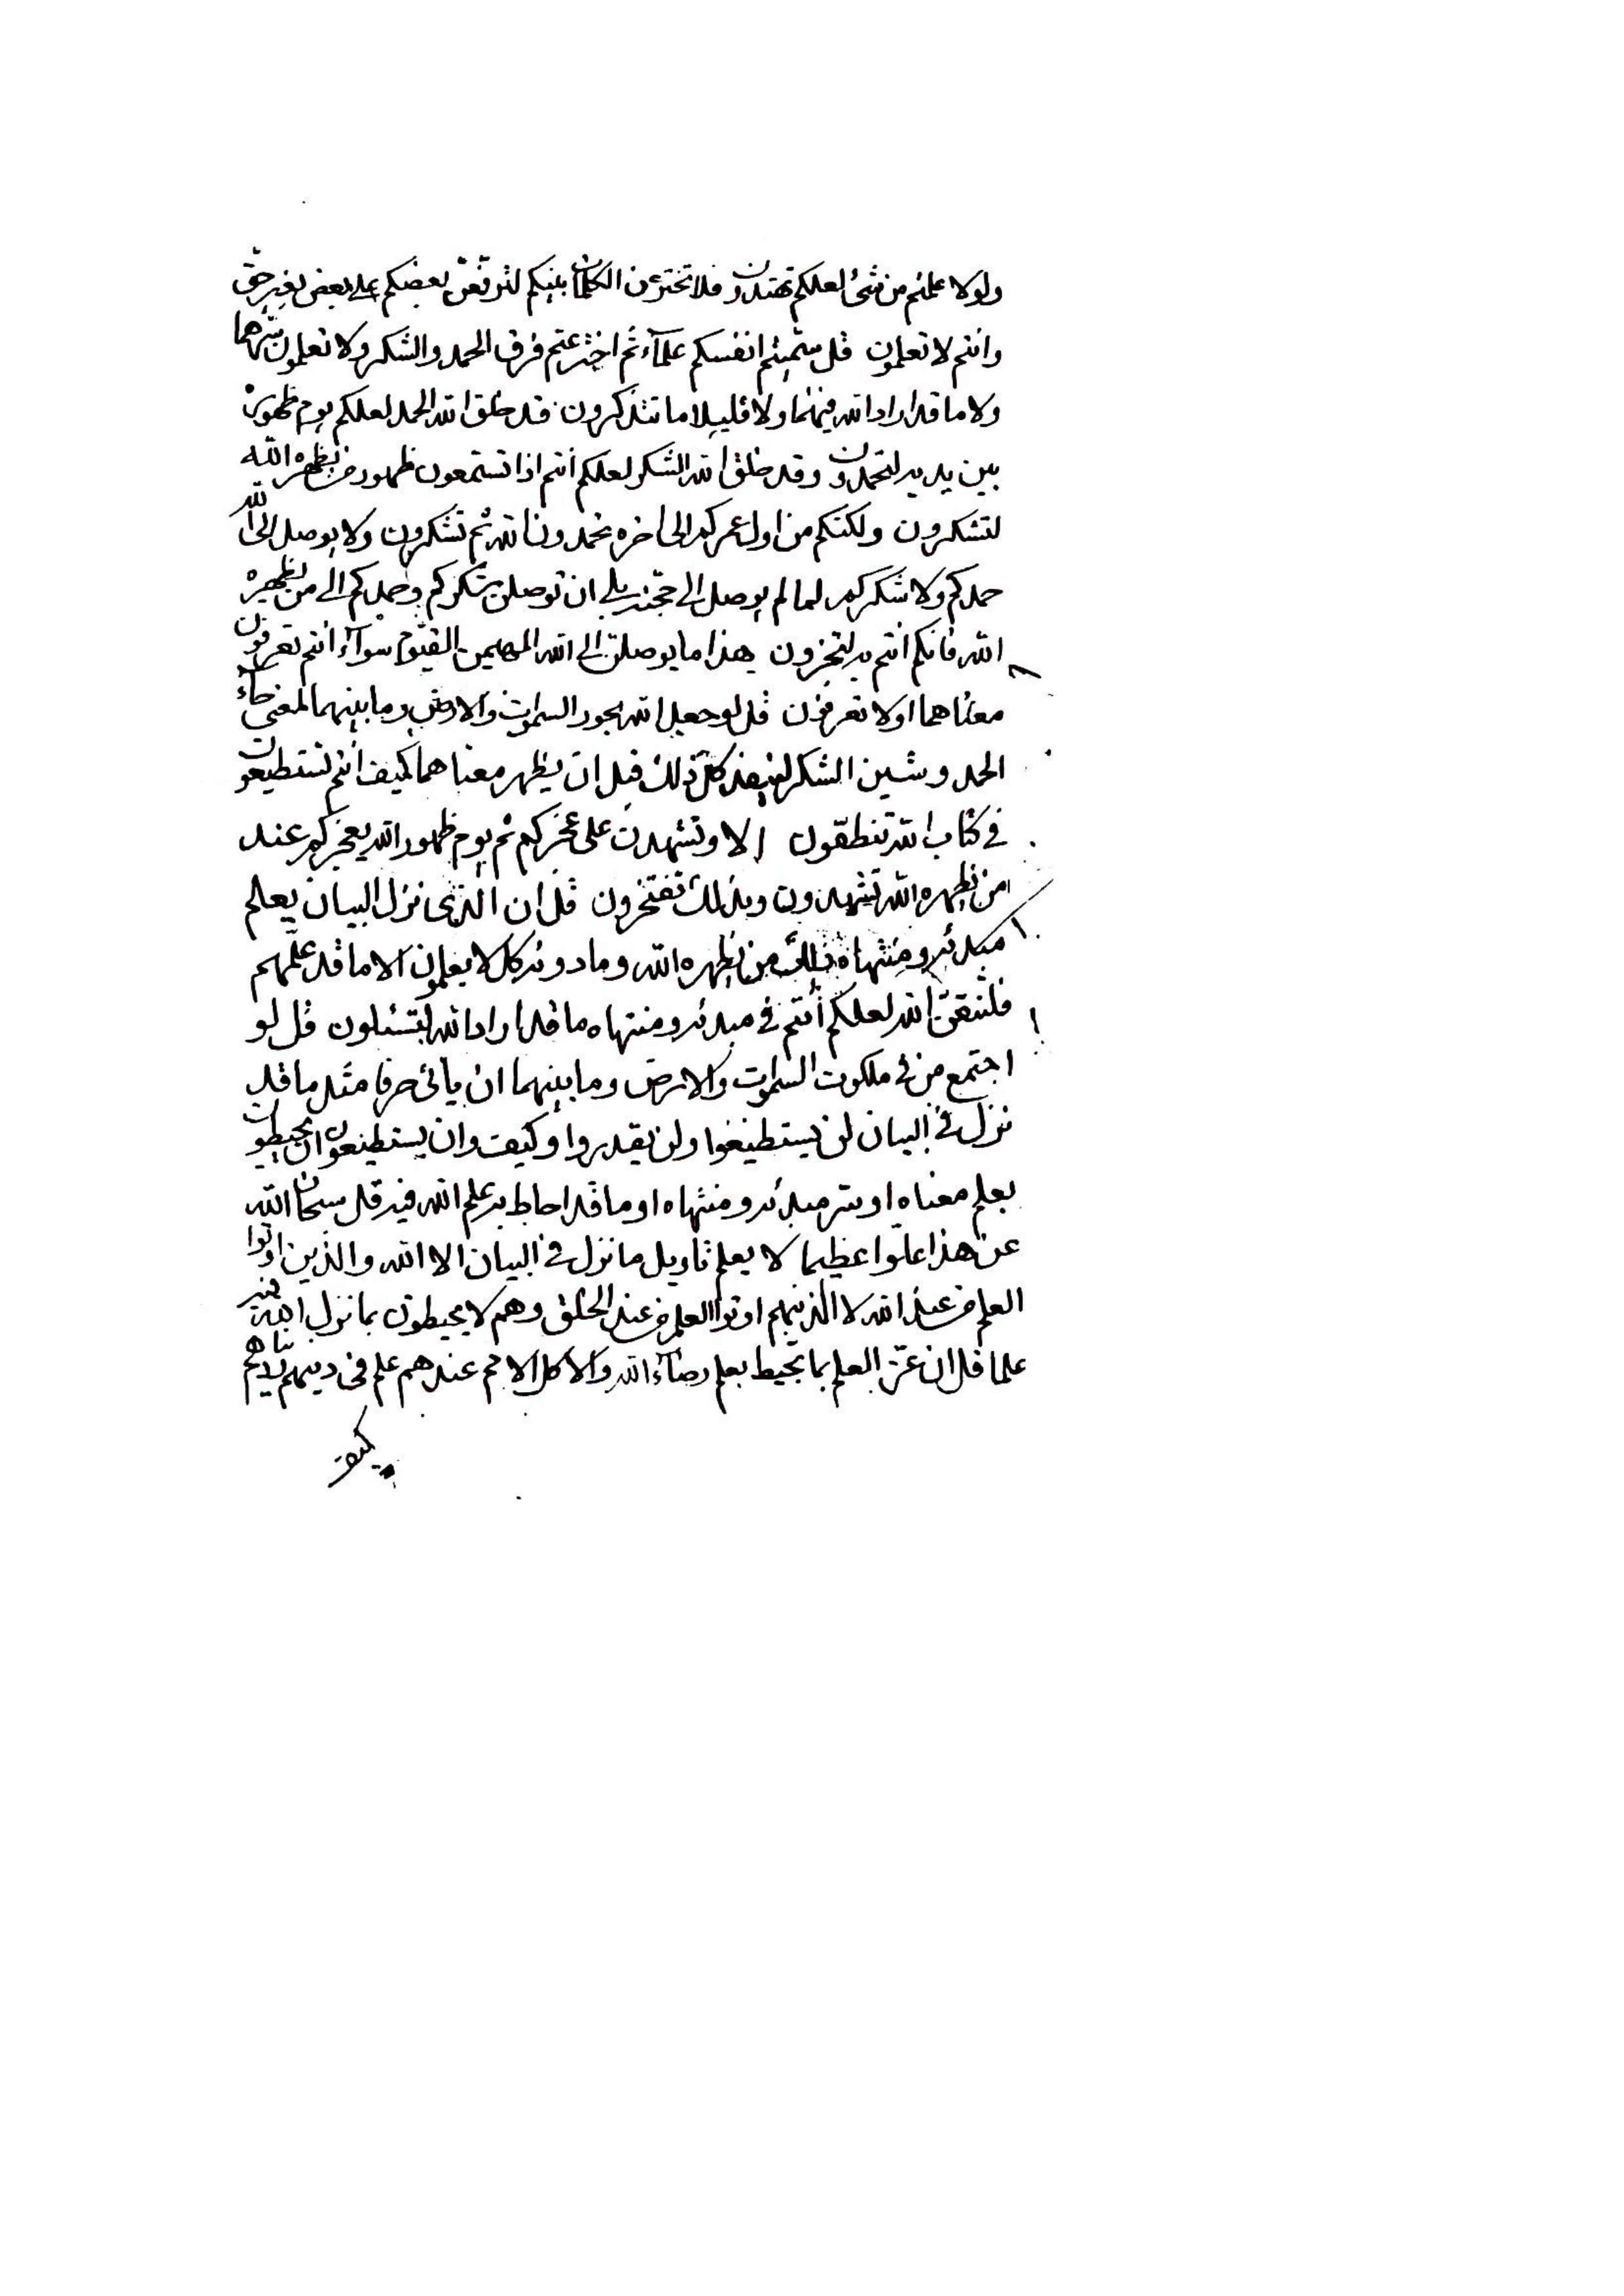 ولولا علمتم من شئ لعلكم تهتدون فلا تخترعن الكلمات بينكم لترفعن بعضكم على بعض بغير حق
وانتم لا تعلمون قل سميتم انفسكم علمآء ثم اخترعتم فرق الحمد والشكر ولا تعلمون سرهما
ولا ما قد اراد الله فيهما ولا قليلا ما تتذكرون قد خلق الله الحمد لعلكم يوم ظهوره
بين يديه لتحمدون وقد خلق الله الشكر لعلكم انتم اذا تستمعون ظهور من يظهره الله
لتشكرون ولكنكم من اول عمركم الى اخره تحمدون الله ثم تشكرون ولا يوصل الى الله
حمدكم ولا شكركم لما لم يوصل الى حجته بلى ان توصلن شكركم وحمدكم الى من يظهره
الله فانكم انتم به لتجزون هذا ما يوصلن الى الله المهيمن القيوم سوآء انتم تعرفون
معناهما او لا تعرفون قل لو جعل الله بحور السموات والارض وما بينهما لمعنى حآء
الحمد وشين الشكر لينفد كل ذلك قبل ان يظهر معناهما كيف انتم تستطيعون
في كتاب الله تنطقون الا وتشهدن على عجزكم ثم يوم ظهور الله بعجزكم عند
من يظهره الله تشهدون وبذلك تفتخرون قل ان الذى نزل البيان يعلم
مبدئه ومنتهاه ذلك من يظهره الله وما دونه كل لا يعلمون الا ما قد علمهم
فلتتقن الله لعلكم انتم في مبدئه ومنتهاه ما قد اراد الله لتسئلون قل لو
اجتمع من في ملكوت السموات والارض وما بينهما ان ياتى حرفا مثل ما قد
نزل في البيان لن يستطيعوا ولن يقدروا وكيف وان يستطيعون ان يحيطون
بعلم معناه او سر مبدئه ومنتهاه او ما قد احاط به علم الله فيه قل سبحان الله
عن هذا علوا عظيما لا يعلم تاويل ما نزل في البيان الا الله والذين اوتوا
العلم من عند الله لا الذينهم اوتوا العلم من عند الخلق وهم لا يحيطون بما نزل الله فيه
علما قل ان عز العلم بما يحيط بعلم رضآء الله والا كل الامم عندهم علم في دينهم